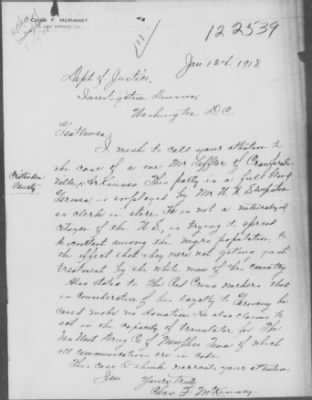 CHAS F. McKINNEY
122539
Jan. 18th, 1918
Dept of Justice,
Investigation Bureau
Washington D.C.
Gentlemen;
I wish to call your attention to
the case of a one Mr Loffler of Crawfords
ville, Arkansas. This party is a full blood
Crittenden
County
German is employed by Mr. W. H.
as clerk in store. He is not a naturalized
citizen of the U.S., is trying to spread
discontent among the negro population, to
the effect that they were not getting just
treatment by the white man of this country
Also stated to the Red Cross workers that
in consideration of his loyalty to Germany he
could make no donation. He also claims to
act in the capacity of translator for The
Van Vleet Drug Co of Memphis Tenn of which
all communications are in code.
This case I think warrant your attention
I am Yours truly
Chas F McKinney